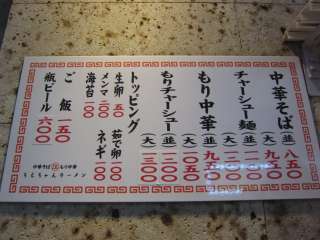 中華そば (並) 八五〇
(大) 九五〇
チャーシュー麺 (並)
(大)
もり中華 (並) 九五〇
(大) 一〇五〇
もりチャーシュー (並) 一二〇〇
(大) 一三〇〇
トッピング
生卵 五〇 茹で卵 一〇〇
メンマ 二〇〇 ネギ 一〇〇
海苔 一〇〇
ご飯 一五〇
瓶ビール 六〇〇
中華そば もり中華